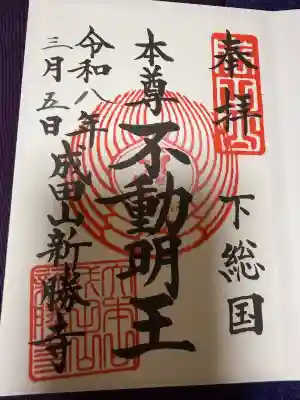 奉拝
下総国
本尊
不動明王
令和八年
三月五日
成田山新勝寺